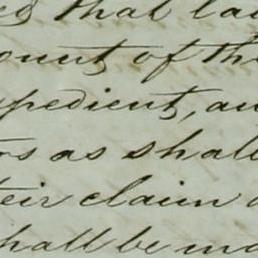 that la
ount of th
pedient, an
as shall
eir claim
hall be ma